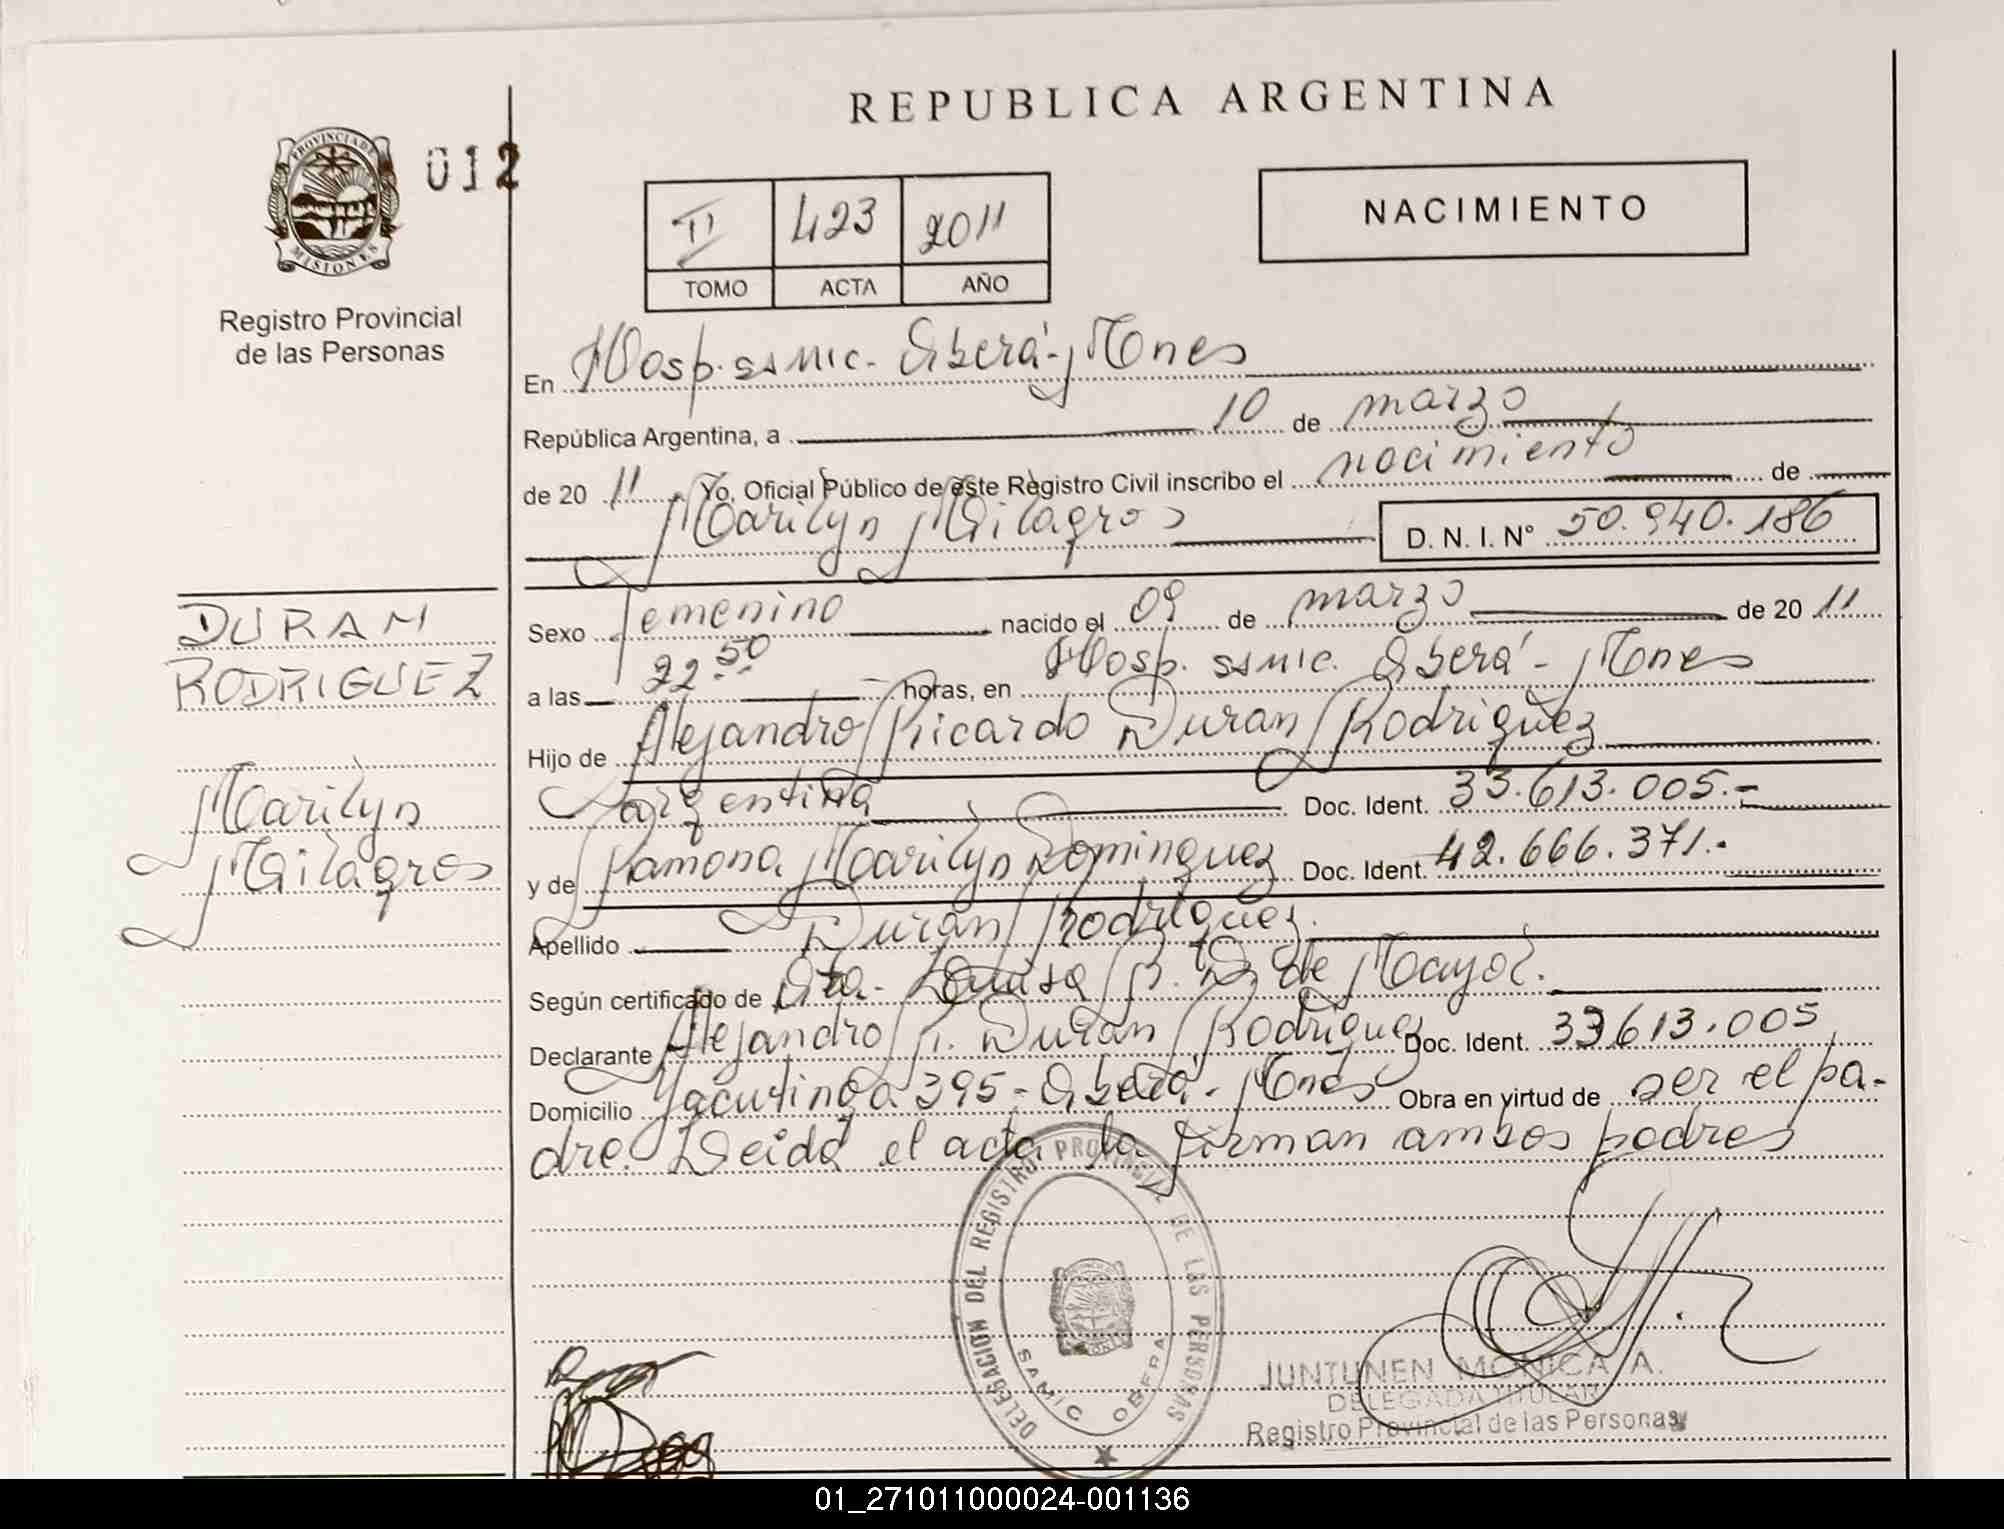 REPUBLICA ARGENTINA
PROVINCIA DE
MISIONES
012
Registro Provincial
de las Personas
II 423 2011
TOMO ACTA AÑO
NACIMIENTO
En Hosp. ssmic. Oberá - Mnes
República Argentina, a 10 de marzo
de 20 11 Yo, Oficial Público de este Registro Civil inscribo el nacimiento de
Marilyn Milagros D. N. I. Nº 50.940.186
DURAN
RODRIGUEZ
Marilyn
Milagros
Sexo femenino nacido el 09 de marzo de 20 11
a las 22.50 horas, en Hosp. ssmic. Oberá - Mnes
Hijo de Alejandro Ricardo Duran Rodriguez
argentina Doc. Ident. 33.613.005.-
y de Ramona Marilyn Dominguez Doc. Ident. 42.666.371.-
Apellido Duran Rodriguez.
Según certificado de Ota. Luisa B. D. de Mayol.
Declarante Alejandro R. Duran Rodriguez Doc. Ident. 33613.005
Domicilio Yacutinga 395 - Oberá - Mnes Obra en virtud de ser el pa-
dre. Leida el acta la firman ambos padres
DELEGACION DEL REGISTRO PROVINCIAL DE LAS PERSONAS
SAMIC OBERA
JUNTUNEN MONICA A.
DELEGADA TITULAR
Registro Provincial de las Personas
01_271011000024-001136